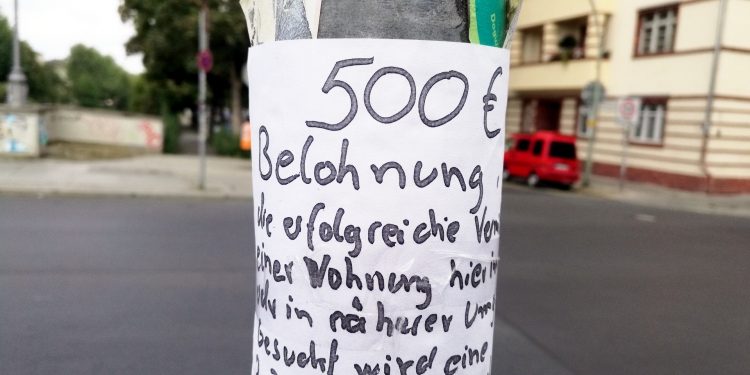 500 €
Belohnung
die erfolgreiche
einer Wohnung hier
in näherer
gesucht wird eine